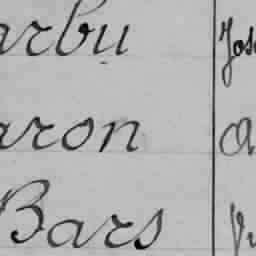 arbu Jos
aron A
Bars